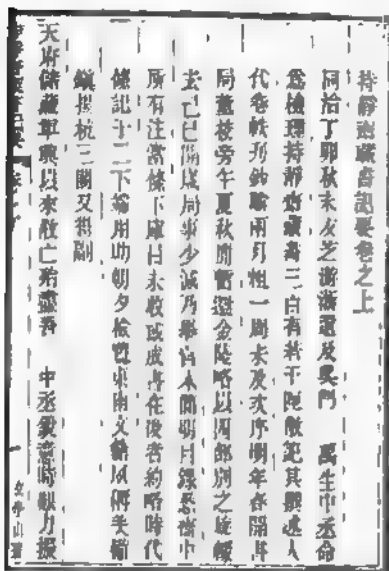 持靜齋藏書記要卷之上
同治丁卯秋末友芝浙游還及吳門 禹生中丞命
爲檢理持靜齋藏書三百有若干匣散記其撰述人
代卷帙刊鈔踰兩月粗一周未及次序明年春開書
局董校旁午夏秋閒暫還金陵略以四部別之旋輟
去己巳開歲局事少減乃舉官本簡明目錄悉齋中
所有注當條下庫目未收或成書在後者約略時代
條記于上下端用助朝夕檢覽東南文籍夙稱美備
鎮揚杭三閣又得副
天府儲藏軍興以來散亡殆盡吾 中丞銳意時艱力振